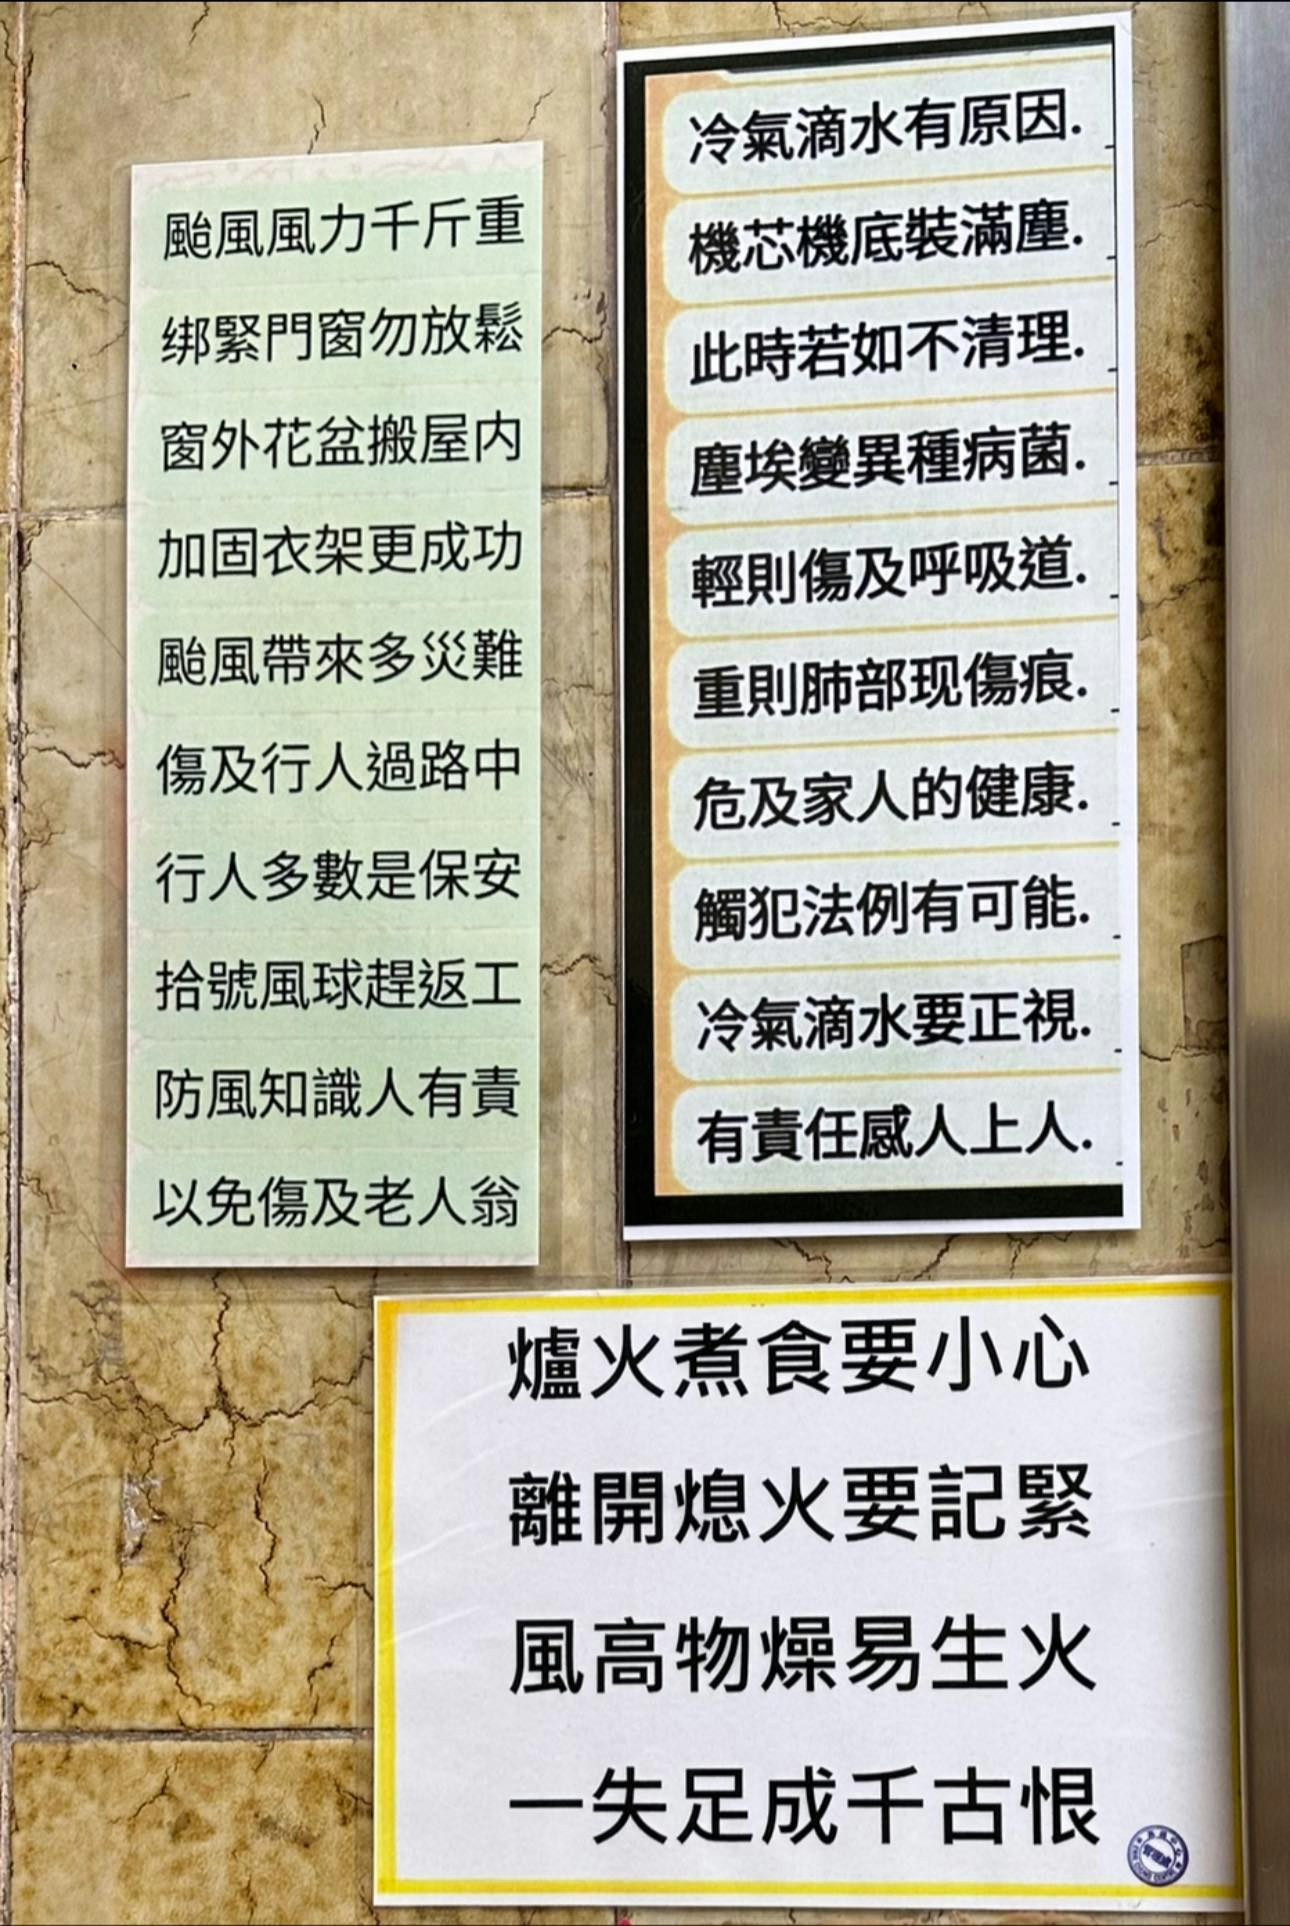 颱風風力千斤重
绑緊門窗勿放鬆
窗外花盆搬屋内
加固衣架更成功
颱風帶來多災難
傷及行人過路中
行人多數是保安
拾號風球趕返工
防風知識人有責
以免傷及老人翁
冷氣滴水有原因.
機芯機底裝滿塵.
此時若如不清理.
塵埃變異種病菌.
輕則傷及呼吸道.
重則肺部现傷痕.
危及家人的健康.
觸犯法例有可能.
冷氣滴水要正視.
有責任感人上人.
爐火煮食要小心
離開熄火要記緊
風高物燥易生火
一失足成千古恨